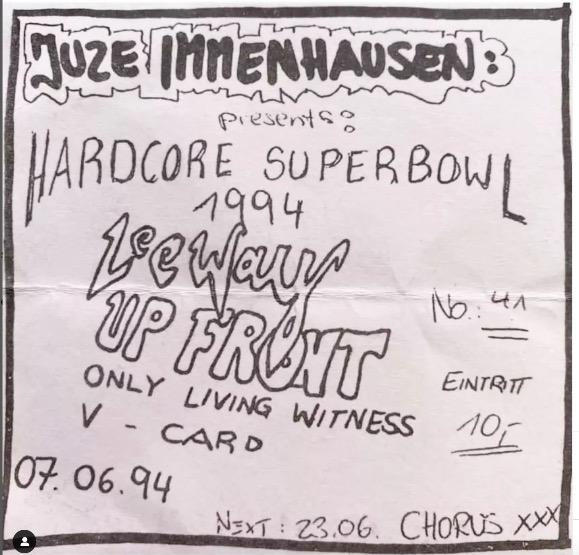 JUZE IMMENHAUSEN:
presents:
HARDCORE SUPERBOWL
1994
LeeWay
UP FRONT
ONLY LIVING WITNESS
V - CARD
No.: 41
EINTRITT
10,-
07.06.94
NEXT: 23.06. CHORUS XXX